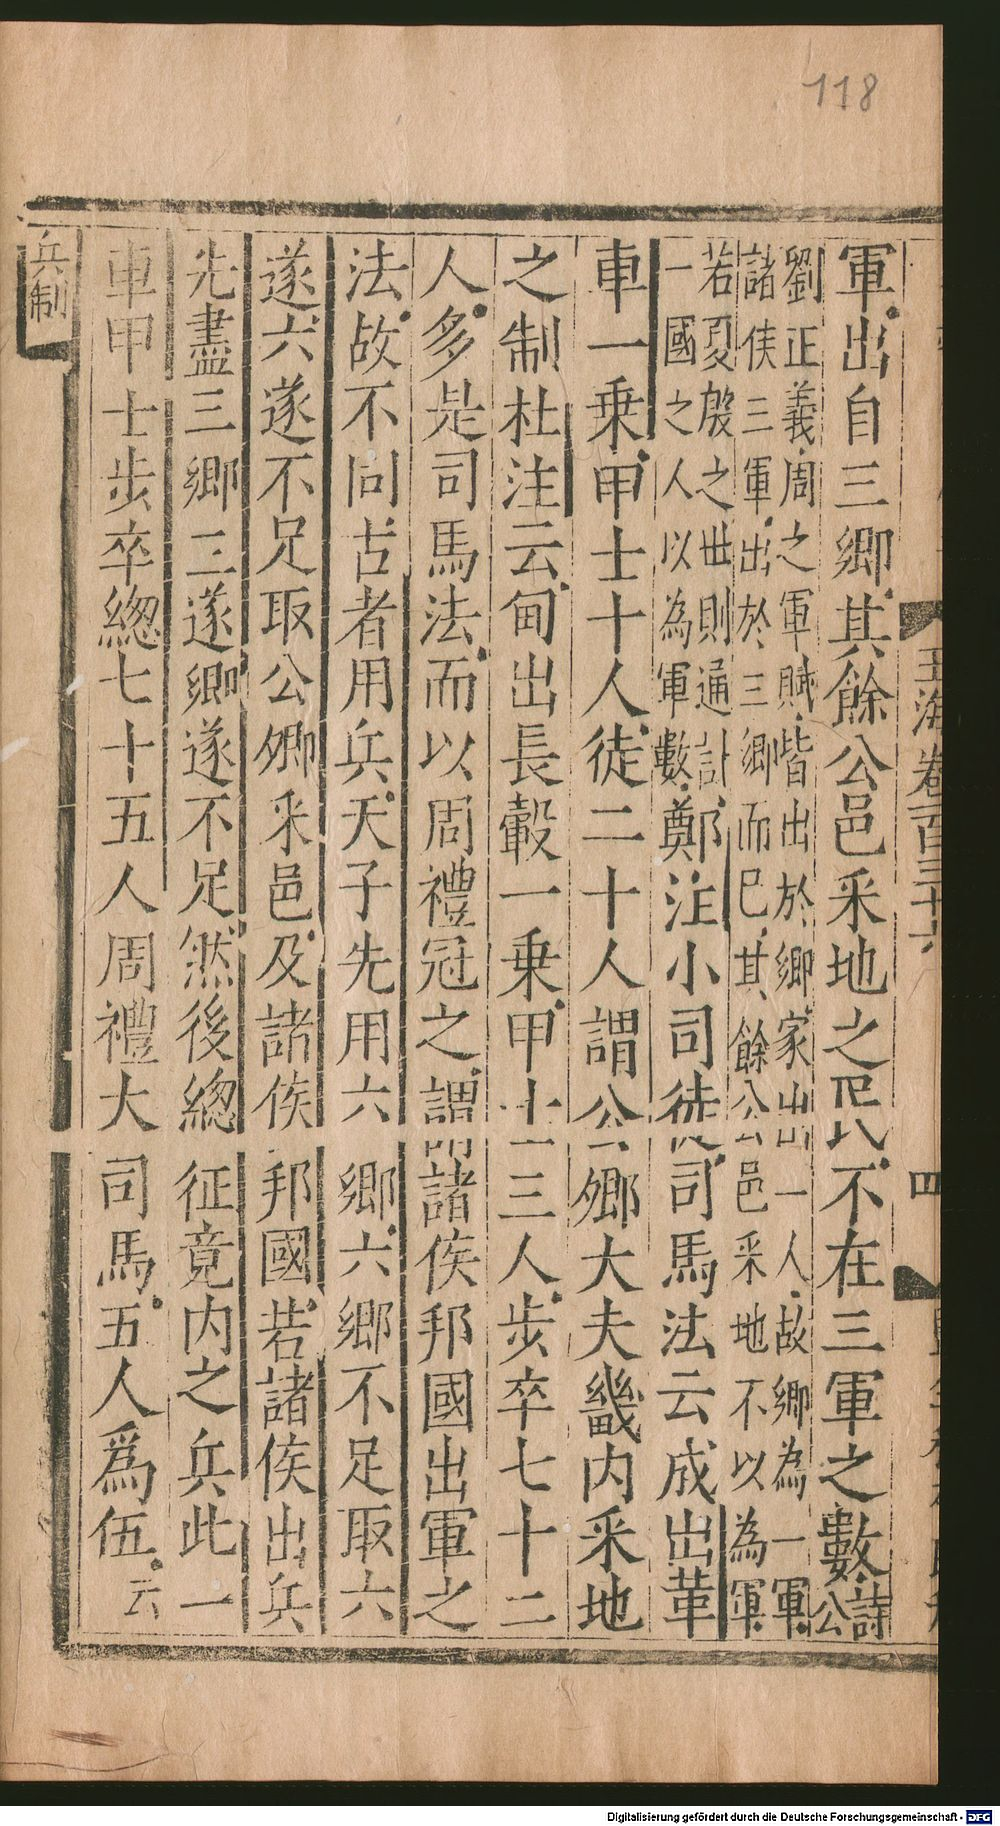 118
玉海卷百三十六
四
軍出自三鄉其餘公邑采地之民不在三軍之數詩公
劉正義周之軍賦皆出於鄉家出一人故鄉為一軍
諸侯三軍出於三鄉而已其餘公邑采地不以為軍
若夏殷之世則通計
一國之人以為軍數鄭注小司徒司馬法云成出革
車一乘甲士十人徒二十人謂公卿大夫畿内采地
之制杜注云甸出長轂一乘甲士三人步卒七十二
人多是司馬法而以周禮冠之謂諸侯邦國出軍之
法故不同古者用兵天子先用六鄉六鄉不足取六
遂六遂不足取公卿采邑及諸侯邦國若諸侯出兵
先盡三鄉三遂鄉遂不足然後總征竟内之兵此一
車甲士步卒總七十五人周禮大司馬五人爲伍云
兵制
Digitalisierung gefördert durch die Deutsche Forschungsgemeinschaft - DFG